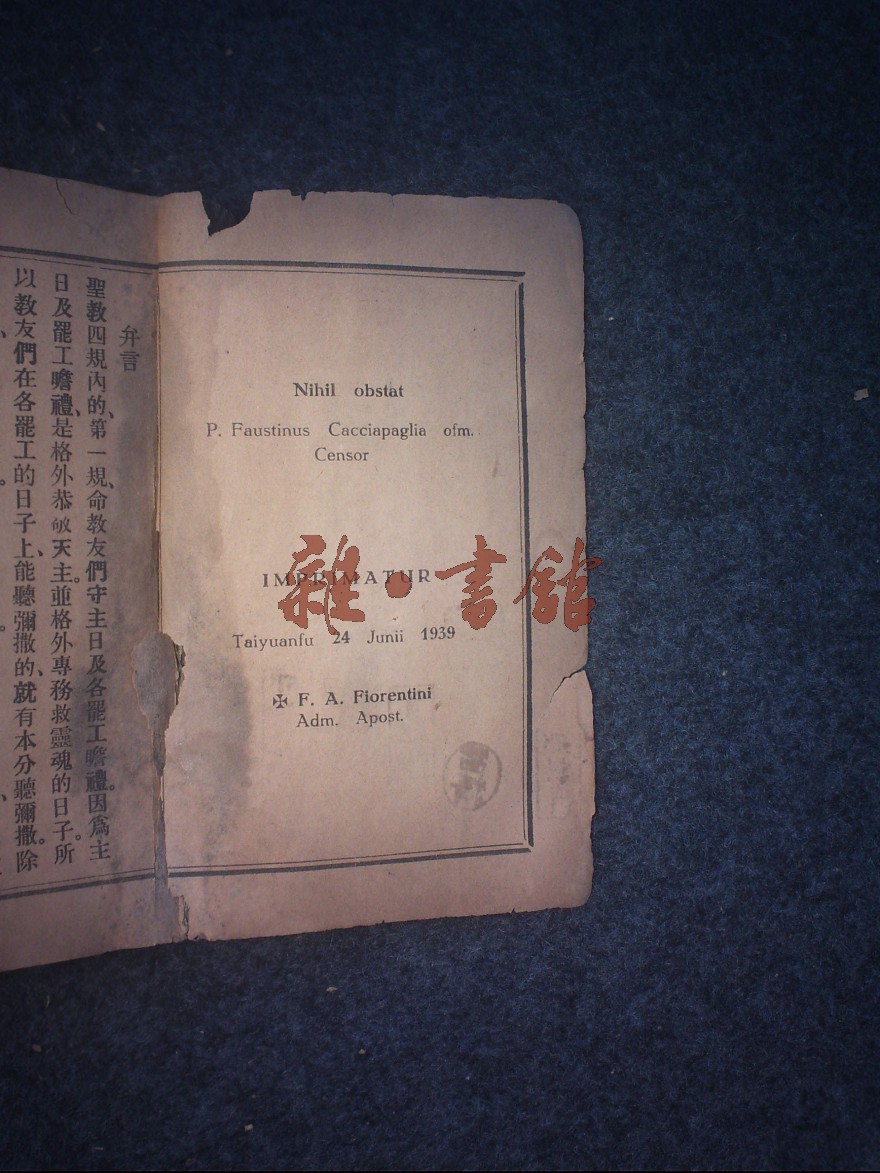 Nihil obstat
P. Faustinus Cacciapaglia ofm.
Censor
IMPRIMATUR
Taiyuanfu 24 Junii 1939
✠ F. A. Fiorentini
Adm. Apost.
雜·書館
弁言
聖教四規內的、第一規、命教友們守主日及各罷工瞻禮。因爲主
日及罷工瞻禮、是格外恭敬天主。並格外專務救靈魂的日子。所
以教友們在各罷工的日子上、能聽彌撒的、就有本分聽彌撒。除